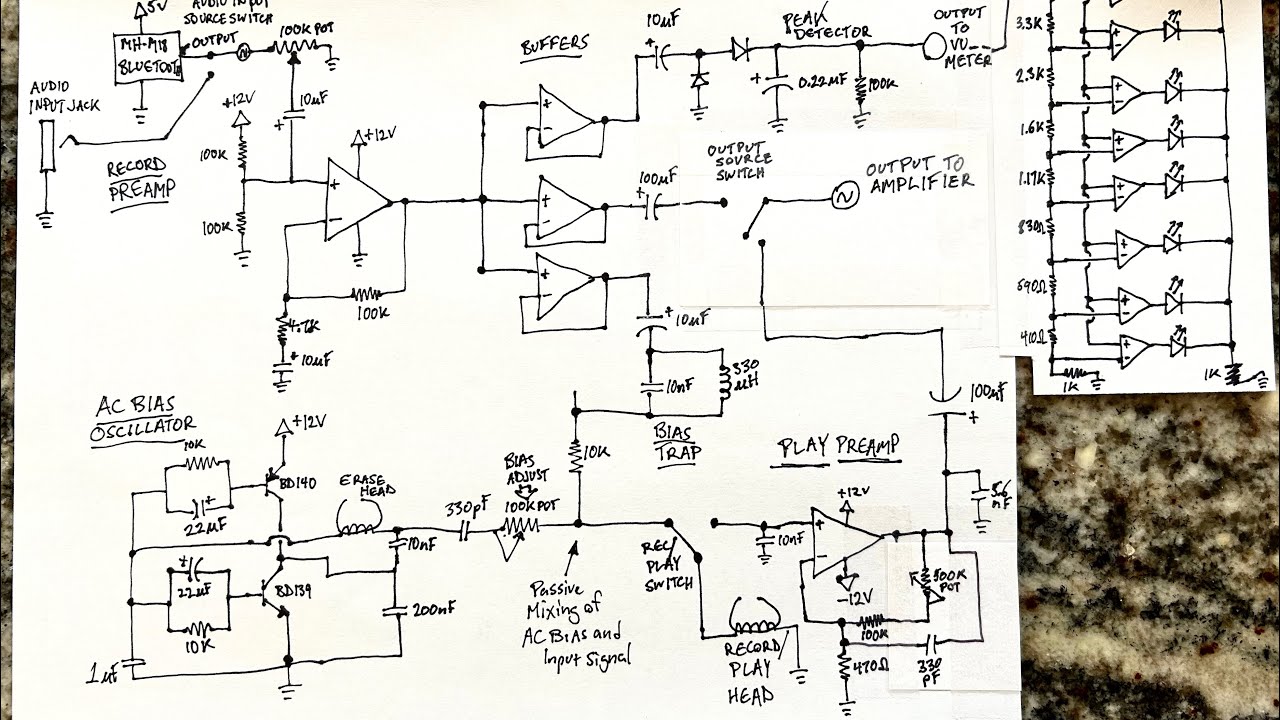 5V
AUDIO INPUT
SOURCE SWITCH
MH-M18
BLUETOOTH
OUTPUT
100K POT
AUDIO
INPUT JACK
+12V
10µF
100K
100K
RECORD
PREAMP
+12V
100K
4.7K
10µF
BUFFERS
10µF
PEAK
DETECTOR
0.22µF
100K
OUTPUT
TO
VU
METER
100µF
OUTPUT
SOURCE
SWITCH
OUTPUT TO
AMPLIFIER
10µF
10nF
330
µH
BIAS
TRAP
3.3K
2.3K
1.6K
1.17K
830Ω
590Ω
410Ω
1K
1K
AC BIAS
OSCILLATOR
+12V
10K
22µF
BD140
ERASE
HEAD
22µF
10K
BD139
1µF
10nF
200nF
330pF
BIAS
ADJUST
100K POT
10K
Passive
Mixing of
AC Bias and
Input Signal
REC/
PLAY
SWITCH
RECORD/
PLAY
HEAD
PLAY PREAMP
+12V
10nF
-12V
100K
470Ω
500K
POT
330
pF
100µF
5.6
nF